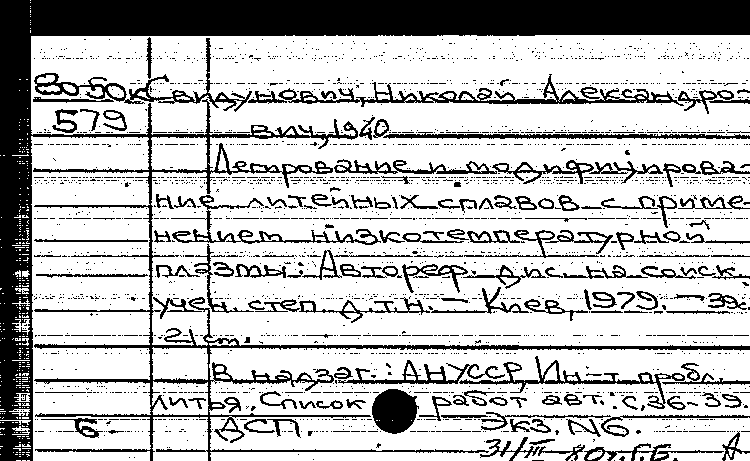 80-50к Свидунович, Николай Александро-
579 вич, 1940
Легирование и модифицирова-
ние литейных сплавов с приме-
нением низкотемпературной
плазмы: Автореф. дис. на соиск.
учен. степ. д.т.н. — Киев, 1979. — 39с.
21 cm.
В надзаг.: АН УССР, Ин-т пробл.
литья. Список работ авт.: с, 36-39.
б. ДСП. Экз. №6.
31/III 80г. Г.Б.